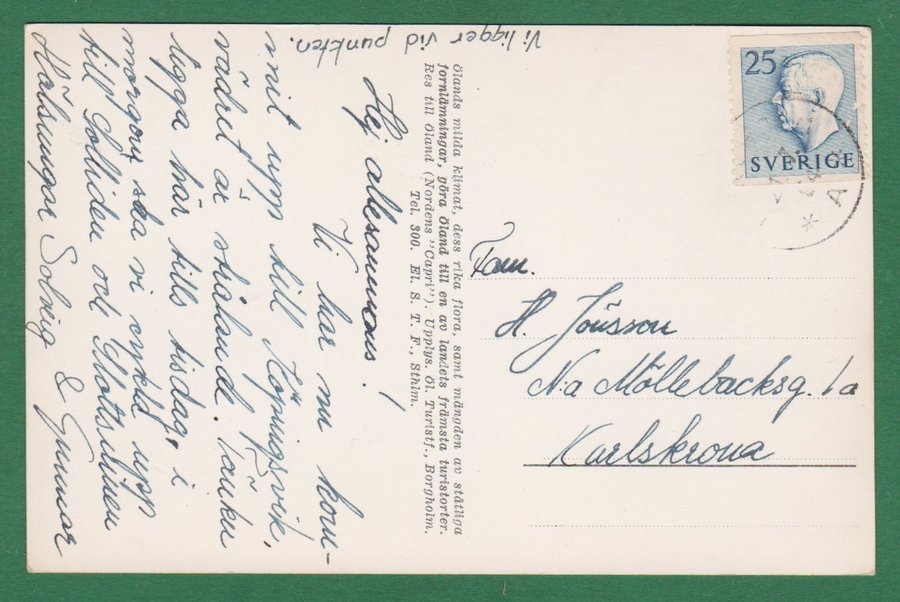 Vi ligger vid punkten.
Hej allesammans!
Vi har nu kom-
mit upp till Köpingsvik,
vädret är strålande. Tänker
ligga här tills tisdag, i
morgon ska vi cykla upp
till Solliden och Slottsruinen
Hälsningar Solveig & Gunnar
Ölands milda klimat, dess rika flora, samt mängden av ståtliga
fornlämningar, göra Öland till en av landets främsta turistorter.
Res till Öland (Nordens "Capri"). Upplys. Öl. Turistf., Borgholm.
Tel. 300. El. S. T. F., Sthlm.
25
SVERIGE
Fam.
H. Jönsson
N:a Möllebacksg. 1a
Karlskrona